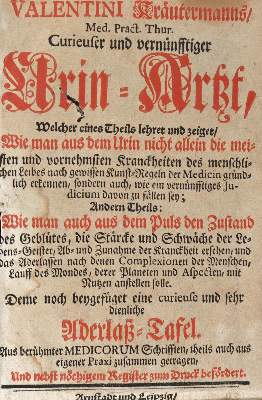 VALENTINI Kräutermanns/
Med. Pract. Thur.
Curieuser und vernünfftiger
Urin-Artzt,
Welcher eines Theils lehret und zeiget/
Wie man aus dem Urin nicht allein die mei-
sten und vornehmsten Kranckheiten des menschli-
chen Leibes nach gewissen Kunst-Regeln der Medicin gründ-
lich erkennen, sondern auch, wie ein vernünfftiges Ju-
dicium davon zu fällen sey;
Andern Theils:
Wie man auch aus dem Puls den Zustand
des Geblütes, die Stärcke und Schwäche der Le-
bens-Geister, Ab- und Zunahme der Kranckheit ersehen, und
das Aderlassen nach deren Complexionen der Menschen,
Lauff des Mondes, derer Planeten und Aspecten, mit
Nutzen anstellen solle.
Deme noch beygefüget eine curieuse und sehr
dienliche
Aderlaß-Tafel.
Aus berühmter MEDICORUM Schrifften, theils auch aus
eigener Praxi zusammen getragen;
Und nebst nöthigem Register zum Druck befördert.
Arnstadt und Leipzig/